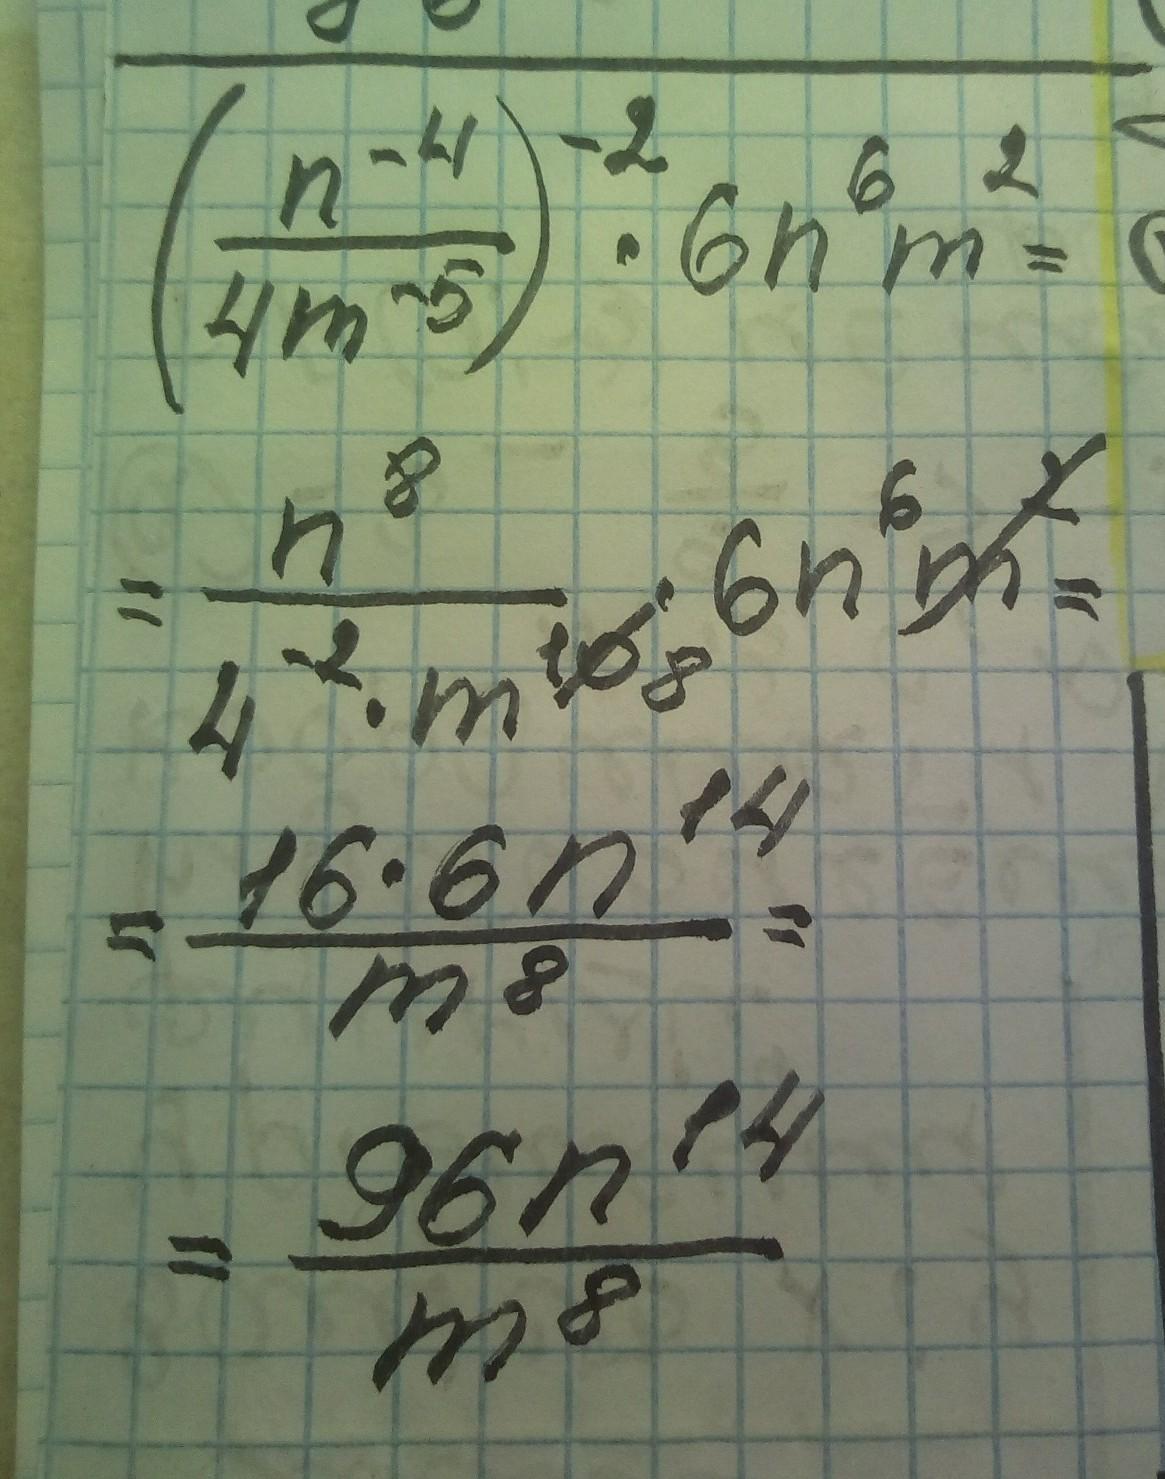 (n⁻⁴/4m⁻⁵)⁻² · 6n⁶m² =
= n⁸/4⁻² · m¹⁰ 8 · 6n⁶m² =
= 16·6n¹⁴/m⁸ =
= 96n¹⁴/m⁸